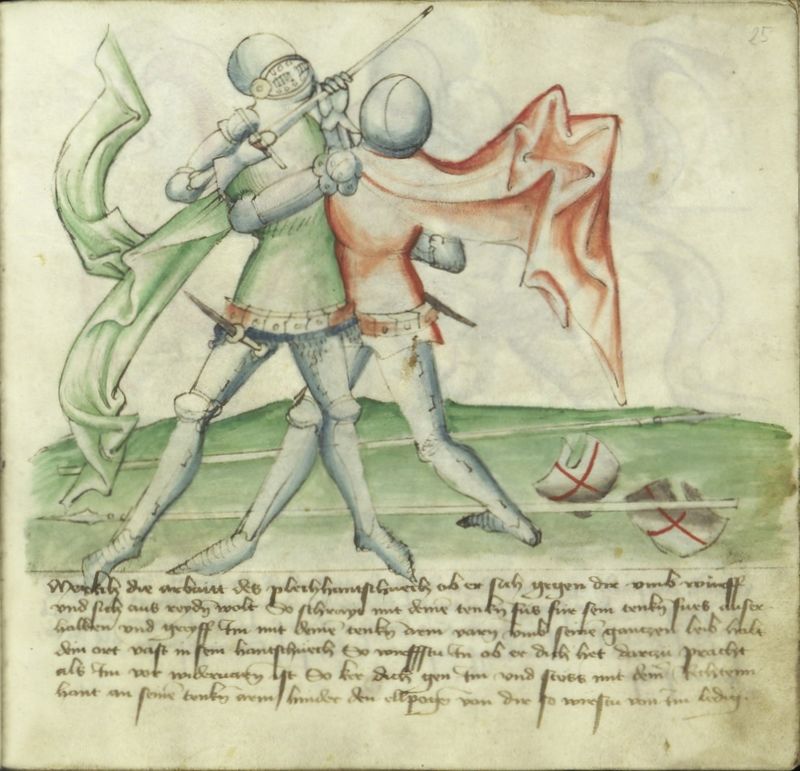 25
Merckh die arbaitt des plechhantschuech ob er sich gegen dir umb wurff
und sich aus reydn wolt So schreyt mit deine tenkn fus fur sein tenkn fues auser
halben und greyff Im mit deine tenkn arm varn umb seine gantzen leib halt
dein ort vast in sein hantschuech So wirffstu In ob er dich het dartzu pracht
als Im vor widervaren ist So ker dich gen Im und stoss mit dem Rechtenn
hant an seine tenkn arm hinder den ellpogen von dir so wirstu von Im ledig